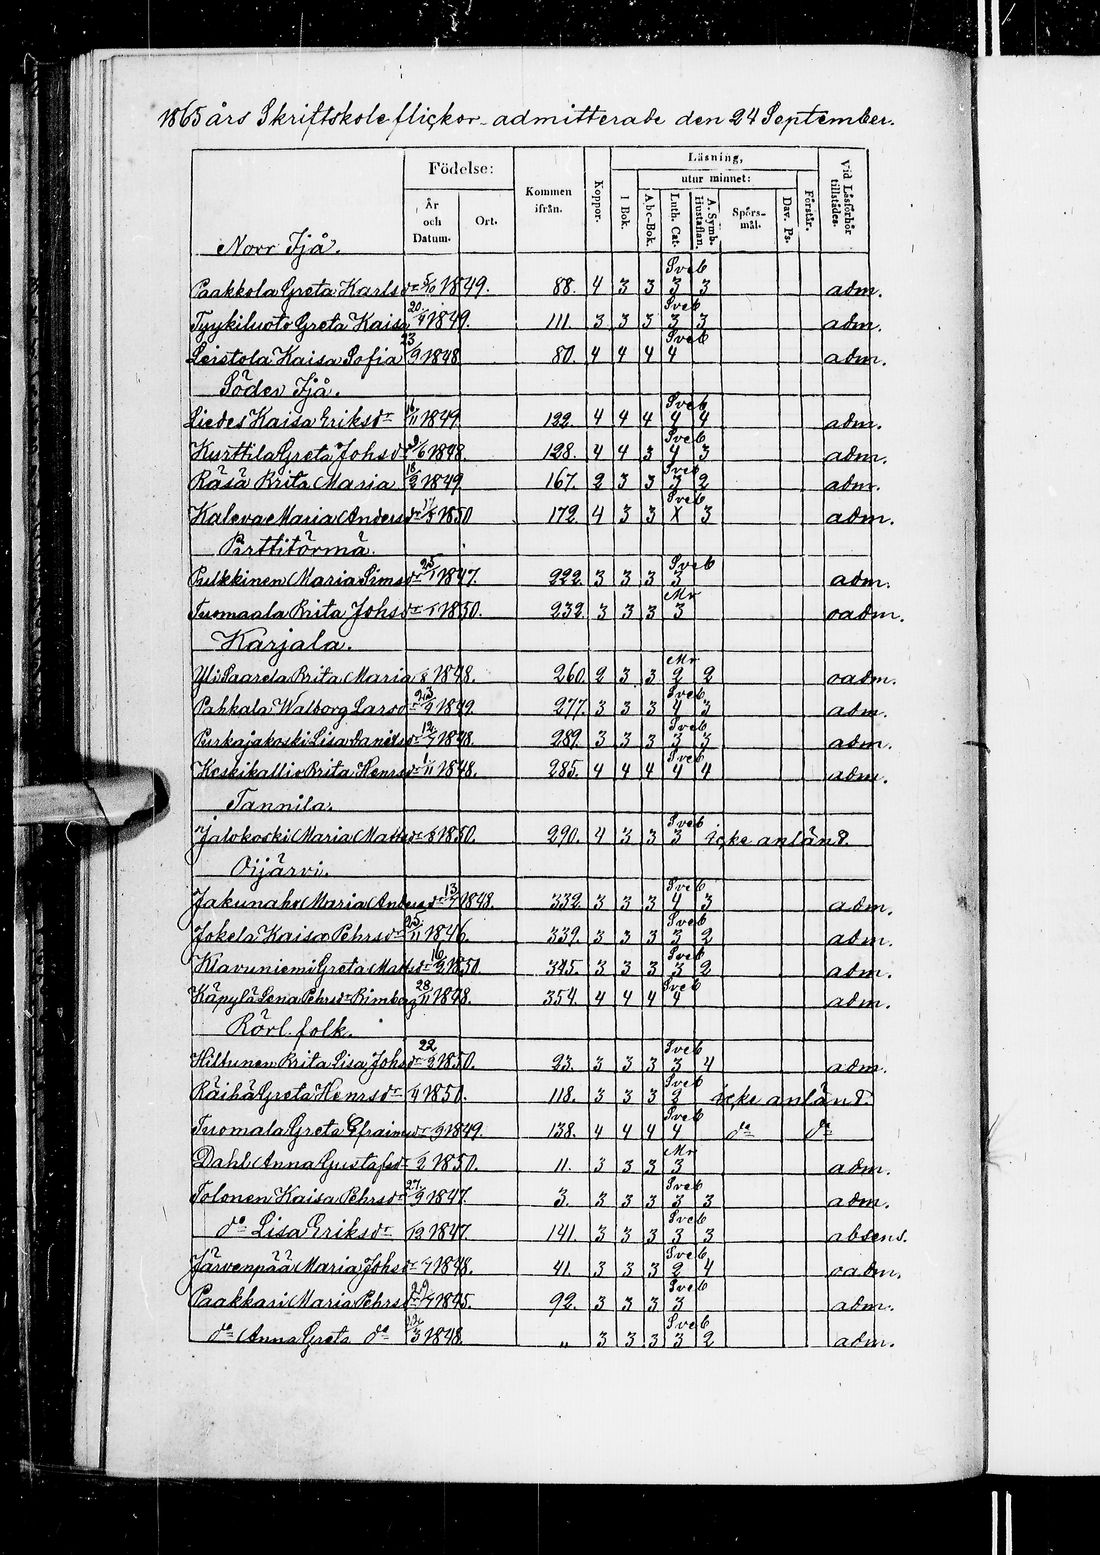 1865 års Skriftskoleflickor admitterade den 24 September.
Födelse: År och Datum. Ort. Kommen ifrån. Koppor. Läsning, I Bok. utur minnet: Abc-Bok. Luth. Cat. A. Symb. Hustaflan. Spörsmål. Dav. Ps. Förstår. Vid Läsförhör tillstädes.
Norr Ijå.
Paakkola Greta Karlsdr 5/6 1849. 88. 4 3 3 Sveb 3 3 adm.
Tyykiluoto Greta Kaisa 20/4 1849. 111. 3 3 3 Sveb 3 3 adm.
Leistola Kaisa Sofia 23/9 1848 80. 4 4 4 Sveb 4 adm.
Söder Ijå.
Liedes Kaisa Eriksdr 16/11 1849. 122. 4 4 4 Sveb 4 4 adm.
Kurttila Greta Johsdr /6 1848. 128. 4 4 3 Sveb 4 3 adm.
Räsä Brita Maria 18/2 1849 167. 2 3 3 Sveb 3 2 adm.
Kaleva Maria Andersdr 1850 172 4 3 3 Sveb X 3 adm.
Pirttitörmä.
Pulkkinen Maria Simsdr 25/1 1847. 222. 3 3 3 Sveb 3 adm.
Tuomaala Brita Johsdr 1850. 232. 3 3 3 Mr 3 oadm.
Karjala.
Yli Saarela Brita Maria 1848. 260. 2 3 3 Mr 2 2 oadm.
Pahkala Walborg Larsdr 23/9 1849. 277. 3 3 3 Sveb 4 3 adm.
Purkajakoski Lisa Danielsdr 12/7 1848. 289. 3 3 3 Sveb 3 3 adm.
Keskikallio Brita Henrsdr 1/11 1848. 285. 4 4 4 Sveb 4 4 adm.
Tannila.
Jalokoski Maria Mattsdr 1850. 290. 4 3 3 Sveb 3 icke anländ.
Oijärvi.
Jakunaho Maria Andersdr 13/7 1848. 332 3 3 3 Sveb 4 3 adm.
Jokela Kaisa Pehrsdr 25/11 1846. 339. 3 3 3 Sveb 3 2 adm.
Klavuniemi Greta Mattsdr 16/3 1850. 345. 3 3 3 Sveb 3 2 adm.
Käpylä Lena Pehrsdr Rimberg 28/11 1848. 354. 4 4 4 Sveb 4 adm.
Rörl. folk.
Hiltunen Brita Lisa Johsdr 22/3 1850. 23. 3 3 3 Sveb 3 4 adm.
Räihä Greta Henrsdr /4 1850. 118. 3 3 3 Sveb 2 icke anländ.
Tuomala Greta Efraimsdr 1849. 138. 4 4 4 Sveb 4 do do
Dahl Anna Gustafsdr /2 1850. 11. 3 3 3 Mr 3 adm.
Tolonen Kaisa Pehrsdr 27/9 1847. 3. 3 3 3 Sveb 3 3 adm.
do Lisa Eriksdr /12 1847. 141. 3 3 3 Sveb 3 3 absens.
Järvenpää Maria Johsdr 1848. 41. 3 3 3 Sveb 2 4 oadm.
Paakkari Maria Pehrsdr 29/7 1845. 92. 3 3 3 Sveb 3 adm.
do Anna Greta do /3 1848 „ 3 3 3 Sveb 3 2 adm.